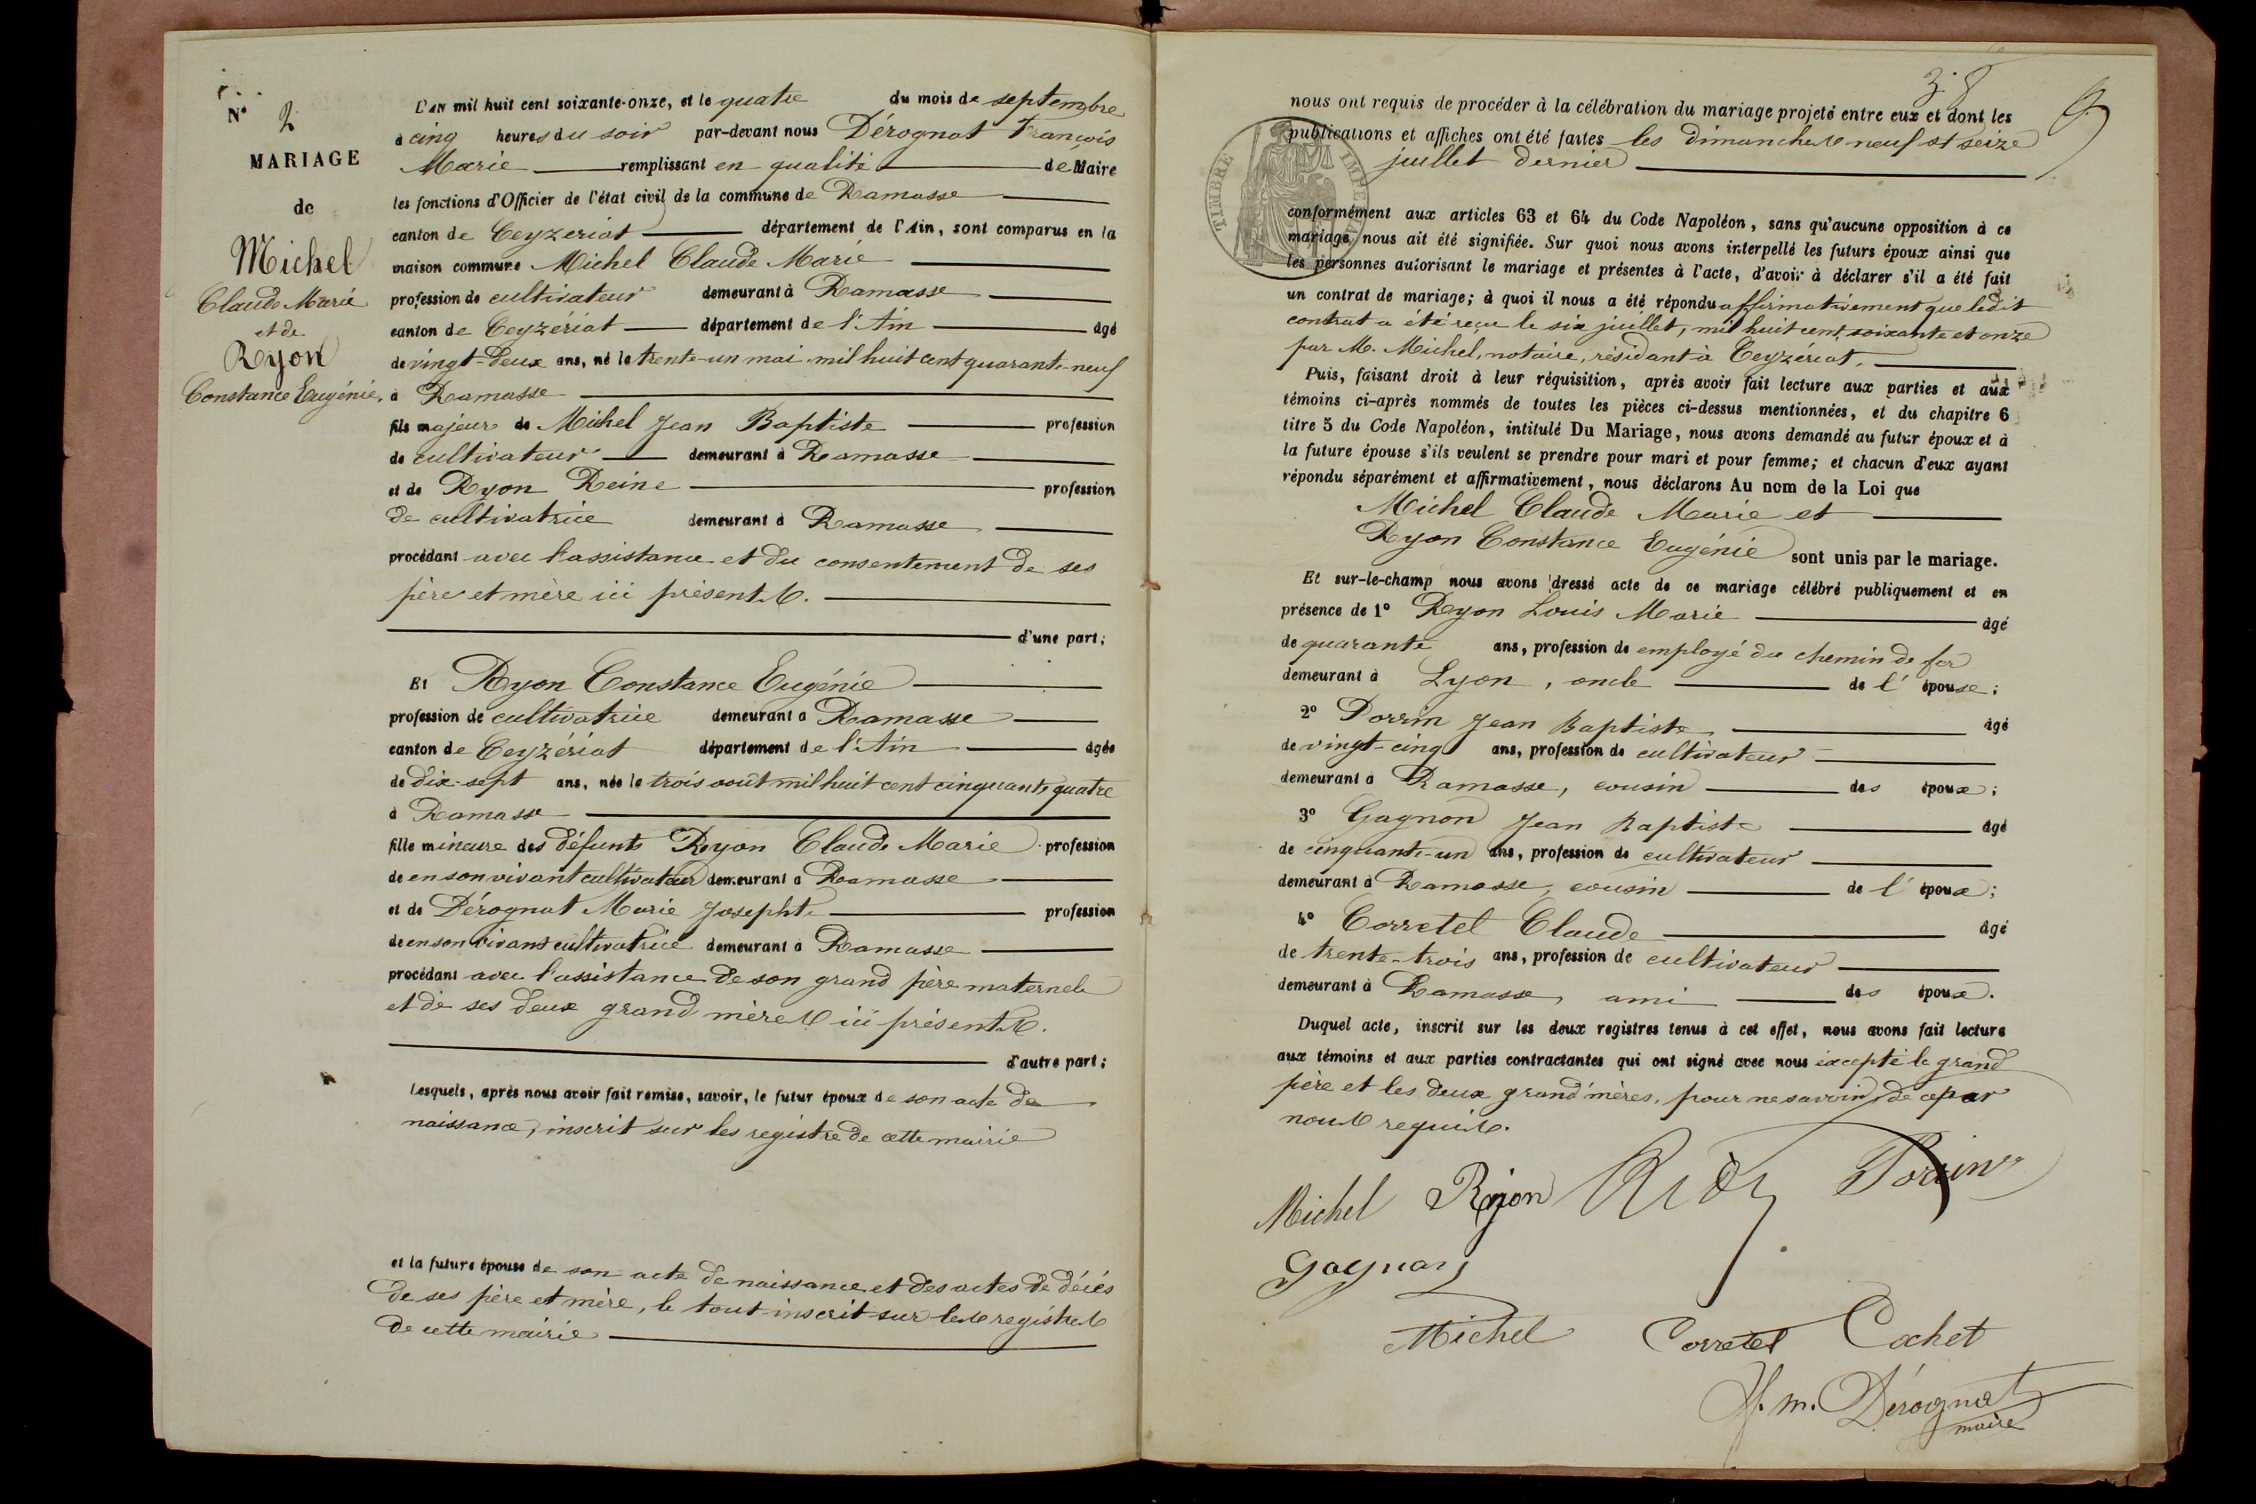 N° 2
MARIAGE
de
Michel
Claude Marie
et de
Ryon
Constance Eugénie,
L'AN mil huit cent soixante-onze, et le quatre du mois de septembre
à cinq heures du soir par-devant nous Dérognat François
Marie remplissant en qualité de Maire
les fonctions d'Officier de l'état civil de la commune de Ramasse
canton de Ceyzeriat département de l'Ain, sont comparus en la
maison commune Michel Claude Marie
profession de cultivateur demeurant à Ramasse
canton de Ceyzériat département de l'Ain âgé
de vingt-deux ans, né le trente-un mai mil huit cent quarante-neuf
à Ramasse
fils majeur de Michel Jean Baptiste profession
de cultivateur demeurant à Ramasse
et de Ryon Reine profession
de cultivatrice demeurant à Ramasse
procédant avec l'assistance et du consentement de ses
père et mère ici présents.
d'une part;
Et Ryon Constance Eugénie
profession de cultivatrice demeurant à Ramasse
canton de Ceyzériat département de l'Ain âgée
de dix-sept ans, née le trois août mil huit cent cinquante quatre
à Ramasse
fille mineure des défunts Ryon Claude Marie profession
de en son vivant cultivateur demeurant à Ramasse
et de Dérognat Marie Josephte profession
de en son vivant cultivatrice demeurant à Ramasse
procédant avec l'assistance de son grand père maternel
et de ses deux grand mères ici présents.
d'autre part;
Lesquels, après nous avoir fait remise, savoir, le futur époux de son acte de
naissance, inscrit sur les registre de cette mairie
et la future épouse de son acte de naissance et des actes de décès
de ses père et mère, le tout inscrit sur les registres
de cette mairie
nous ont requis de procéder à la célébration du mariage projeté entre eux et dont les
publications et affiches ont été faites les dimanches neuf et seize
juillet dernier
TIMBRE IMPERIAL
conformément aux articles 63 et 64 du Code Napoléon, sans qu'aucune opposition à ce
mariage nous ait été signifiée. Sur quoi nous avons interpellé les futurs époux ainsi que
les personnes autorisant le mariage et présentes à l'acte, d'avoir à déclarer s'il a été fait
un contrat de mariage; à quoi il nous a été répondu affirmativement que ledit
contrat a été reçu le six juillet, mil huit cent soixante et onze
par M. Michel, notaire, résidant à Ceyzériat.
Puis, faisant droit à leur réquisition, après avoir fait lecture aux parties et aux
témoins ci-après nommés de toutes les pièces ci-dessus mentionnées, et du chapitre 6
titre 5 du Code Napoléon, intitulé Du Mariage, nous avons demandé au futur époux et à
la future épouse s'ils veulent se prendre pour mari et pour femme; et chacun d'eux ayant
répondu séparément et affirmativement, nous déclarons Au nom de la Loi que
Michel Claude Marie et
Ryon Constance Eugénie sont unis par le mariage.
Et sur-le-champ nous avons dressé acte de ce mariage célébré publiquement et en
présence de 1° Ryon Louis Marie âgé
de quarante ans, profession de employé du chemin de fer
demeurant à Lyon, oncle de l'épouse;
2° Porrin Jean Baptiste âgé
de vingt-cinq ans, profession de cultivateur
demeurant à Ramasse, cousin des époux;
3° Gagnon Jean Baptiste âgé
de cinquante-un ans, profession de cultivateur
demeurant à Ramasse, cousin de l'époux;
4° Corretel Claude âgé
de trente-trois ans, profession de cultivateur
demeurant à Ramasse, ami des époux.
Duquel acte, inscrit sur les deux registres tenus à cet effet, nous avons fait lecture
aux témoins et aux parties contractantes qui ont signé avec nous excepté le grand
père et les deux grand'mères, pour ne savoir, de ce par
nous requis.
Michel Ryon Porrin
Gagnon
Michel Corretel Cochet
f. m. Dérognat
maire